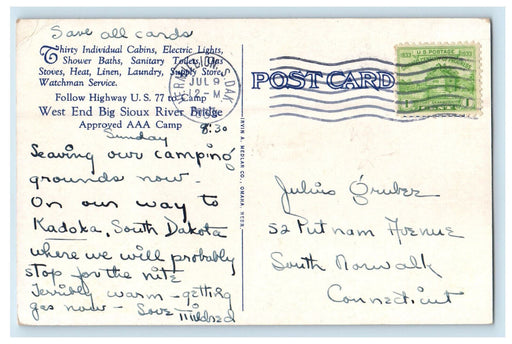 Save all cards
Thirty Individual Cabins, Electric Lights,
Shower Baths, Sanitary Toilets, Gas
Stoves, Heat, Linen, Laundry, Supply Store,
Watchman Service.
Follow Highway U.S. 77 to Camp
West End Big Sioux River Bridge
Approved AAA Camp
VERMILLION, S.DAK.
JUL 9
12-M
U.S. POSTAGE
1833 1933
1 1
POST CARD
IRVIN A. MEDLAR CO., OMAHA, NEBR.
Sunday 8:30
Leaving our camping
grounds now.
On our way to
Kadoka, South Dakota
where we will probably
stop for the nite
Terribly warm - getting
gas now - Love Mildred
Julius Gruber
52 Putnam Avenue
South Norwalk
Connecticut